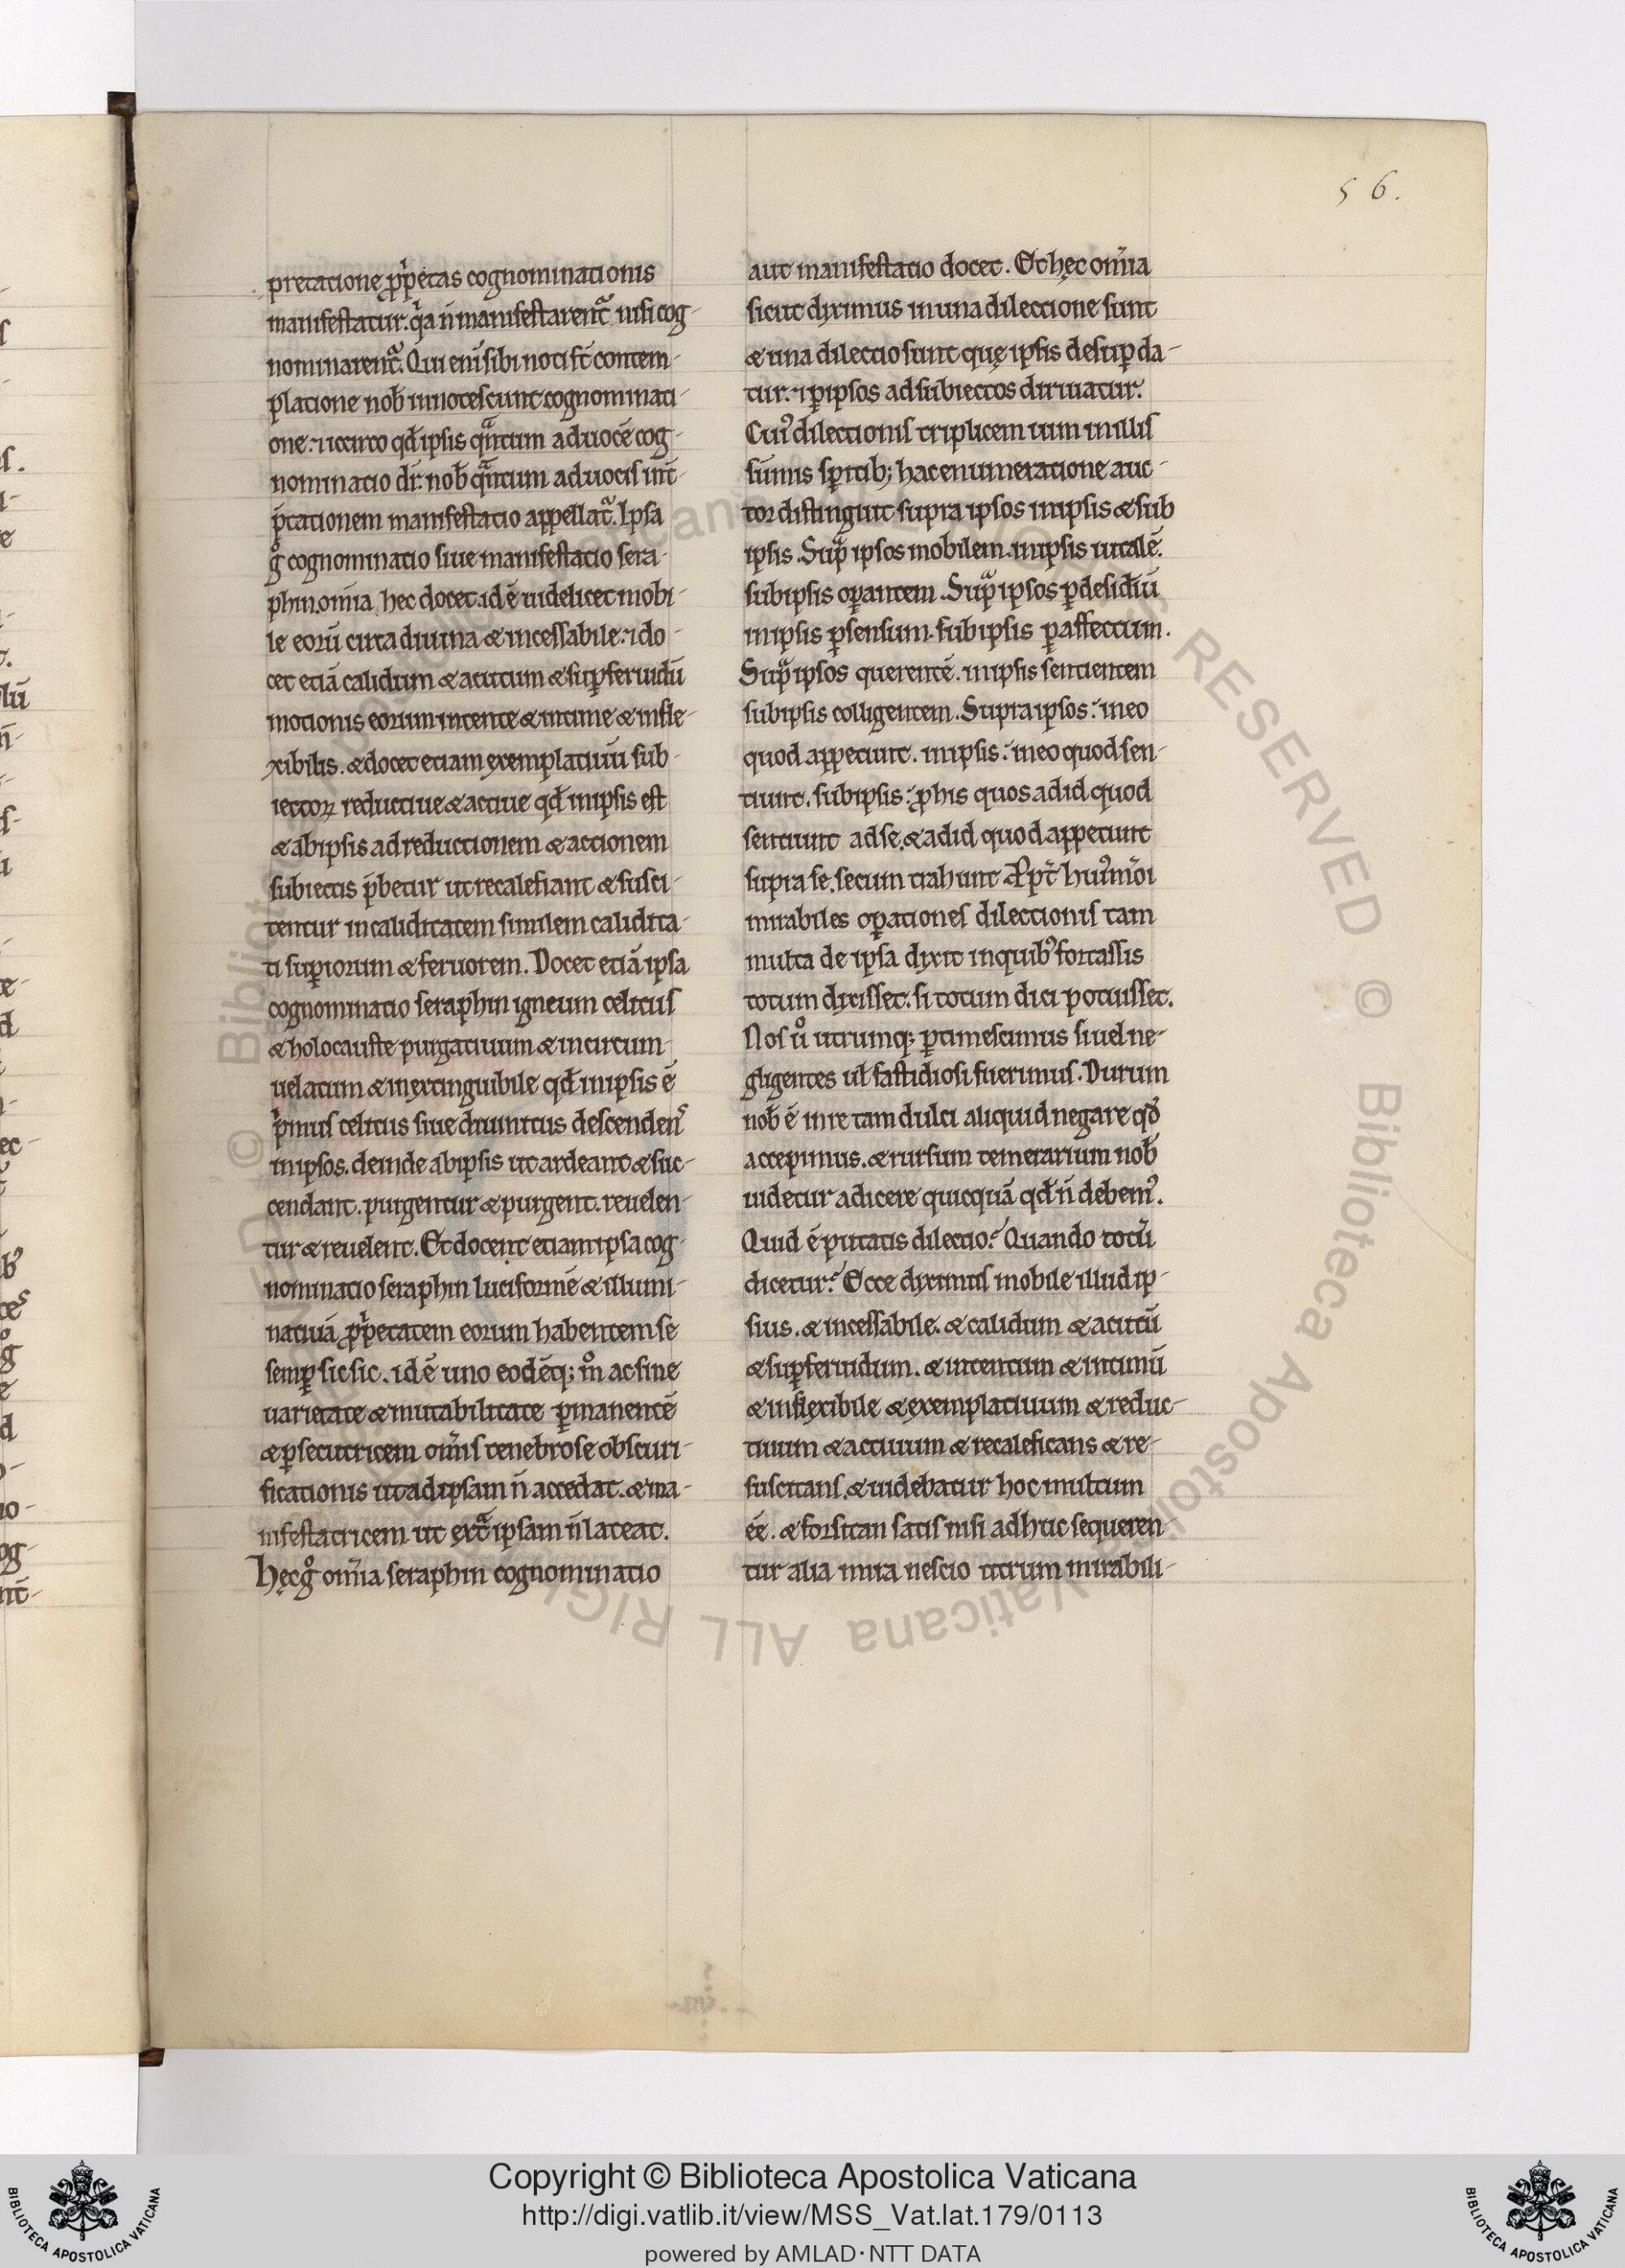 56.
pretatione ꝓp̍etas cognominationis
manifestatur. q̍a n̄ manifestarent᷑ nisi cog-
nominarent᷑. Qui enī sibi noti st̄ contem-
platione nob̄ innotescunt cognominati-
one. ⁊ iccirco qd̄ ipsis qͣntum ad uocē cog-
nominatio dr̄. nob̄ qͣntum ad uocis int̄-
p̄tationem manifestatio appellat᷑. Ipsa
gͦ cognominatio siue manifestatio sera-
phin. om̄ia hec docet. id ē uidelicet mobi-
le eorū circa diuina & incessabile. ⁊ do-
cet etiā calidum & acutum & suꝑferuidū
motionis eorum intente & intime & infle-
xibilis. & docet etiam exemplatiuū sub-
iectoꝝ reductiue & actiue qd̄ in ipsis est
& ab ipsis ad reductionem & actionem
subiectis p̄betur ut recalefiant & susci-
tentur in caliditatem similem calidita-
ti suꝑiorum & feruorem. Docet etiā ipsa
cognominatio seraphin igneum celitus
& holocauste purgatiuum & incircum-
uelatum & inextinguibile qd̄ in ipsis ē
p̍mus celitus siue diuinitus descendens
in ipsos. deinde ab ipsis ut ardeant & suc-
cendant. purgentur & purgent. reuelen-
tur & reuelent. Et docent etiam ipsa cog-
nominatio seraphin luciformē & illumi-
natiuā ꝓp̍etatem eorum habentem se
semꝑ sic sic. id ē uno eodēq; mͦ ac sine
uarietate & mutabilitate ꝑmanentē
& ꝑsecutricem om̄is tenebrose obscuri-
ficationis ut ad ipsam n̄ accedat. & ma-
nifestatricem ut extͣ ipsam n̄ lateat.
Hęc gͦ om̄ia seraphin cognominatio
aut manifestatio docet. Et hęc om̄ia
sicut diximus in una dileccione sunt
& una dilectio sunt quę ipsis desuꝑ da-
tur. ⁊ ꝑ ipsos ad subiectos diriuatur.
Cuiꝰ dilectionis triplicem uim in illis
sūmis sp̄itib; hac enumeratione auc-
tor distinguit supra ipsos in ipsis & sub
ipsis. Supͣ ipsos mobilem. in ipsis uitalē.
sub ipsis oꝑantem. Supͣ ipsos ꝑ desid̄iū
in ipsis ꝑ sensum. sub ipsis ꝑ affectum.
Supͣ ipsos querentē. in ipsis sentientem
sub ipsis colligentem. Supra ipsos: in eo
quod appetiunt. in ipsis: in eo quod sen-
tiunt. sub ipsis: ꝓ his quos ad id quod
sentiunt ad se. & ad id quod appetunt
supra se. secum trahunt. Ppt̄ huiꝰmōi
mirabiles oꝑationes dileccionis tam
multa de ipsa dixit in quibꝰ fortassis
totum dixisset. si totum dici potuisset.
Nos ůͦ utrumq; ꝑtimescimus siuel ne-
gligentes ul̄ fastidiosi fuerimus. Durum
nob̄ ē in re tam dulci aliquid negare qd̄
accepimus. & rursum temerarium nob̄
uidetur adicere quicquā qd̄ n̄ debemꝰ.
Quid ē putatis dilectio? Quando totū
dicetur? Ecce diximus mobile illud ip-
sius. & incessabile. & calidum & acutū
& suꝑferuidum. & intentum & intimū
& inflexibile & exemplatiuum & reduc-
tiuum & actiuum & recaleficans & re-
suscitans. & uidebatur hoc multum
ēe. & forsitan satis nisi adhuc sequeren-
tur alia mira nescio utrum mirabili-
Copyright © Biblioteca Apostolica Vaticana
http://digi.vatlib.it/view/MSS_Vat.lat.179/0113
powered by AMLAD·NTT DATA